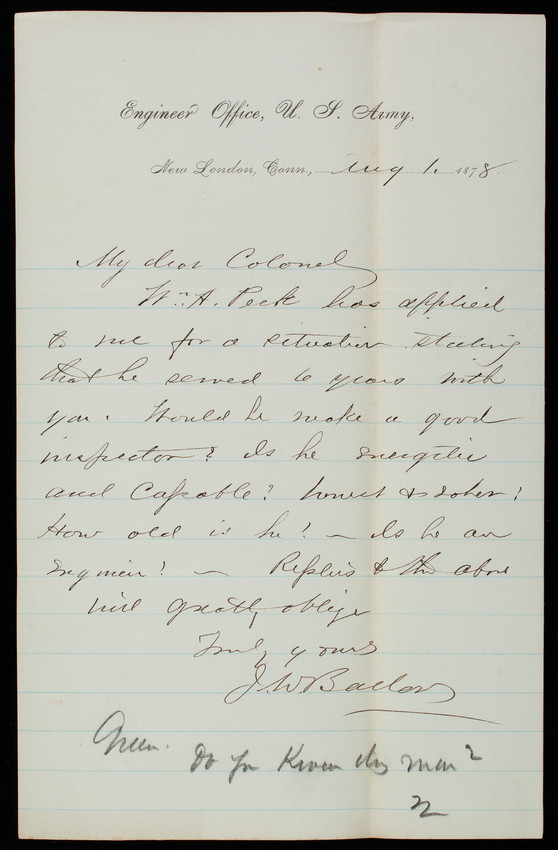 Engineer Office, U. S. Army,
New London, Conn., Aug 1. 1878
My dear Colonel
Wm A. Peck has applied
to me for a situation stating
that he served 6 years with
you. Would he make a good
inspector? Is he energetic
and capable? honest & sober?
How old is he? — Is he an
Engineer? — Replies to the above
will greatly oblige
Truly yours
J. W. Barlow
Green. Do you know this man?